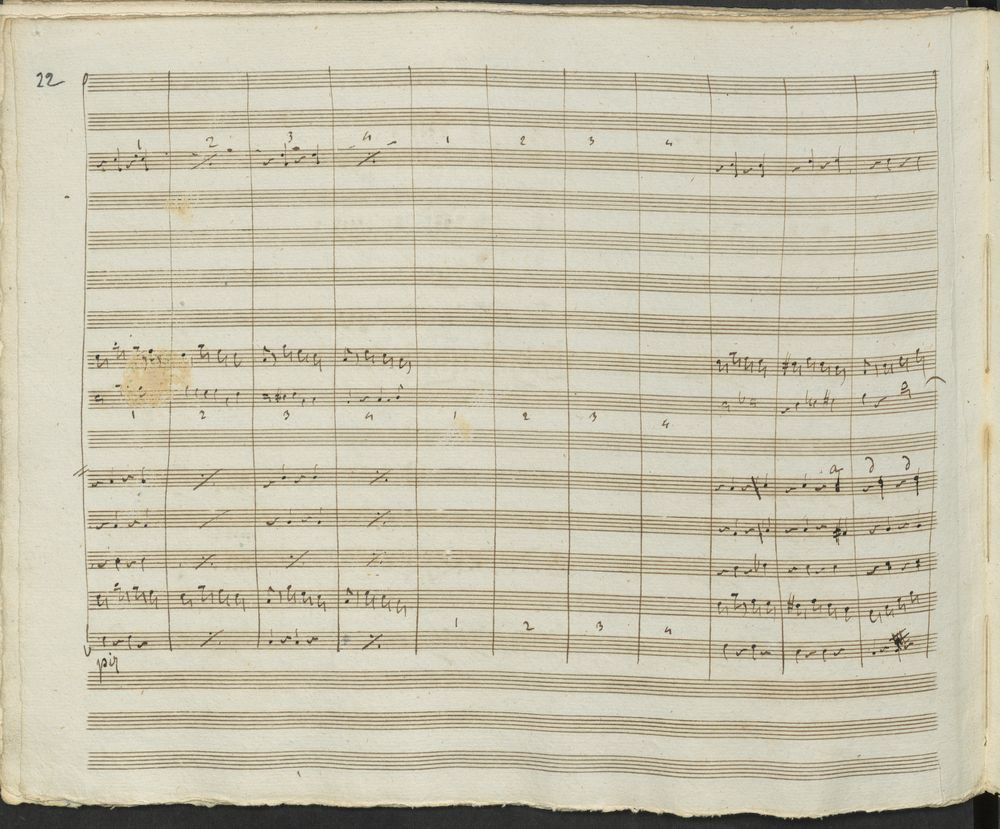 22
1 2 3 4 1 2 3 4
1 2 3 4 1 2 3 4
1 2 3 4